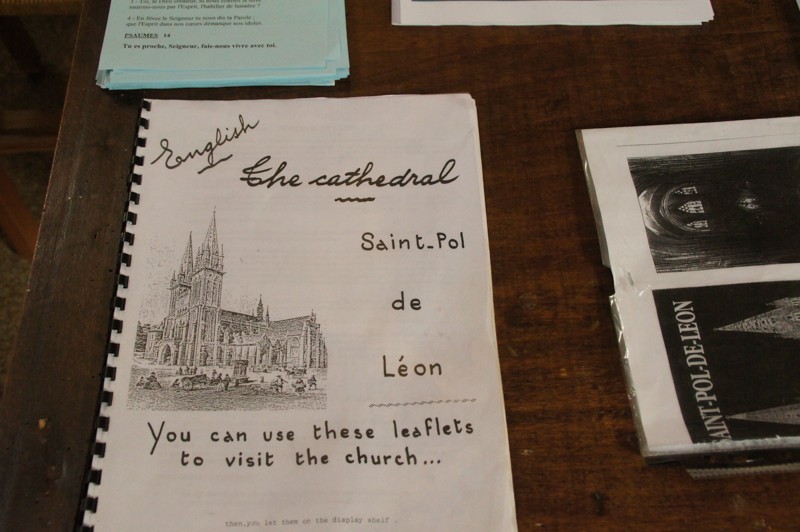 nous par l'Esprit, l'habiller de lumière !
4 - En Jésus le Seigneur tu nous dis ta Parole ;
que l'Esprit dans nos cœurs démasque nos idoles
PSAUMES 14
Tu es proche, Seigneur, fais-nous vivre avec toi.
English
The cathedral
Saint-Pol
de
Léon
You can use these leaflets
to visit the church...
then,you let them on the display shelf .
SAINT-POL-DE-LEON